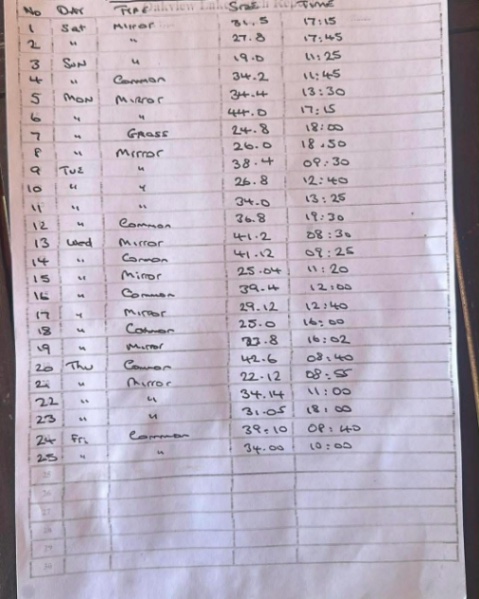 No DAY TYPE SIZE TIME
1 Sat Mirror 31.5 17:15
2 " " 27.8 17:45
3 SUN " 19.0 11:25
4 " Common 34.2 11:45
5 MON Mirror 34.4 13:30
6 " " 44.0 17:15
7 " GRASS 24.8 18:00
8 " Mirror 26.0 18.50
9 TUE " 38.4 09:30
10 " " 26.8 12:40
11 " " 34.0 13:25
12 " Common 36.8 19:30
13 Wed Mirror 41.2 08:30
14 " Common 41.12 09:25
15 " Mirror 25.04 11:20
16 " Common 39.4 12:00
17 " Mirror 29.12 12:40
18 " Common 25.0 16:00
19 " Mirror 16:02
20 Thu Common 42.6 08:40
21 " Mirror 22.12 08:55
22 " " 34.14 11:00
23 " " 31.05 18:00
24 Fri Common 39.10 09:40
25 " " 34.00 10:00
26
27
28
29
30